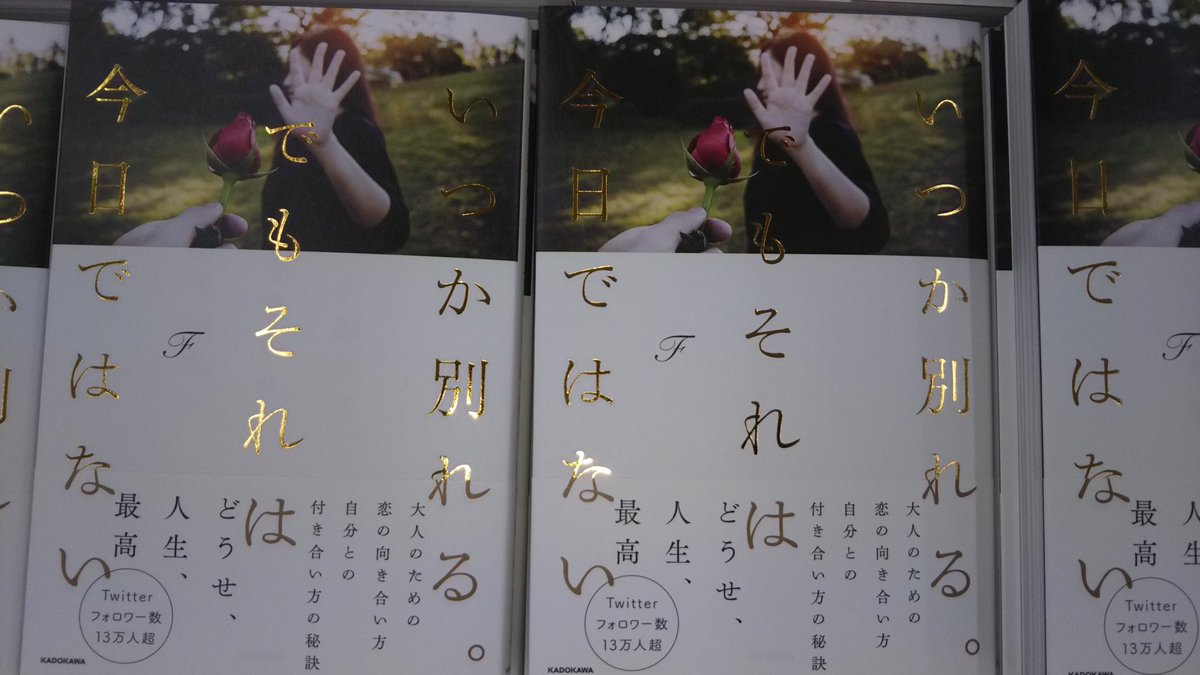 いつか別れる。
でもそれは
今日ではない
F
大人のための
恋の向き合い方
自分との
付き合い方の秘訣
どうせ、
人生、
最高
Twitter
フォロワー数
13万人超
KADOKAWA
いつか別れる。
でもそれは
今日ではない
F
大人のための
恋の向き合い方
自分との
付き合い方の秘訣
どうせ、
人生、
最高
Twitter
フォロワー数
13万人超
KADOKAWA
今日ではない
F
人生、
最高
Twitter
フォロワー数
13万人超
KADOKAWA